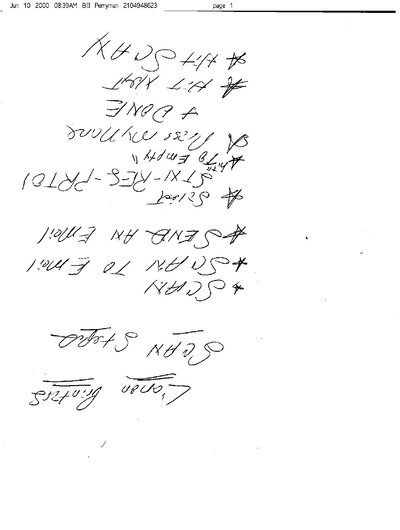 Jun 10 2000 08:39AM Bill Perryman 2104948623 page 1
Canon Printers
SCAN Steps
* SCAN
* SCAN TO Email
* SEND AN Email
* Select
STXI-RES-PRT01
* TO Empty"
* Press My Name
+ DONE
* Hit Next
* Hit SCAN